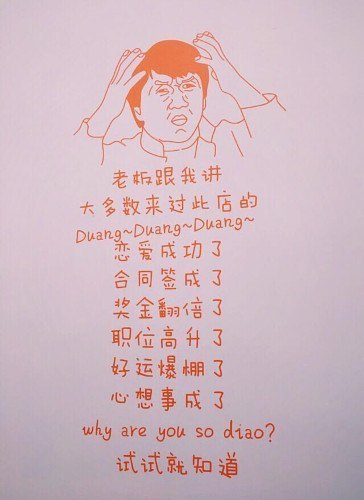 老板跟我讲
大多数来过此店的
Duang~Duang~Duang~
恋爱成功了
合同签成了
奖金翻倍了
职位高升了
好运爆棚了
心想事成了
why are you so diao?
试试就知道